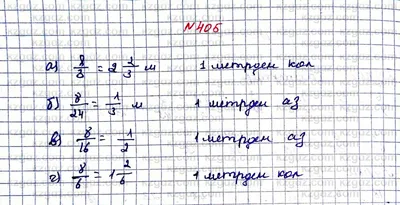 №406
а) 8/3 = 2 2/3 м 1 метрден кол
б) 8/24 = 1/3 м 1 метрден аз
в) 8/16 = 1/2 1 метрден аз
г) 8/6 = 1 2/6 1 метрден кол